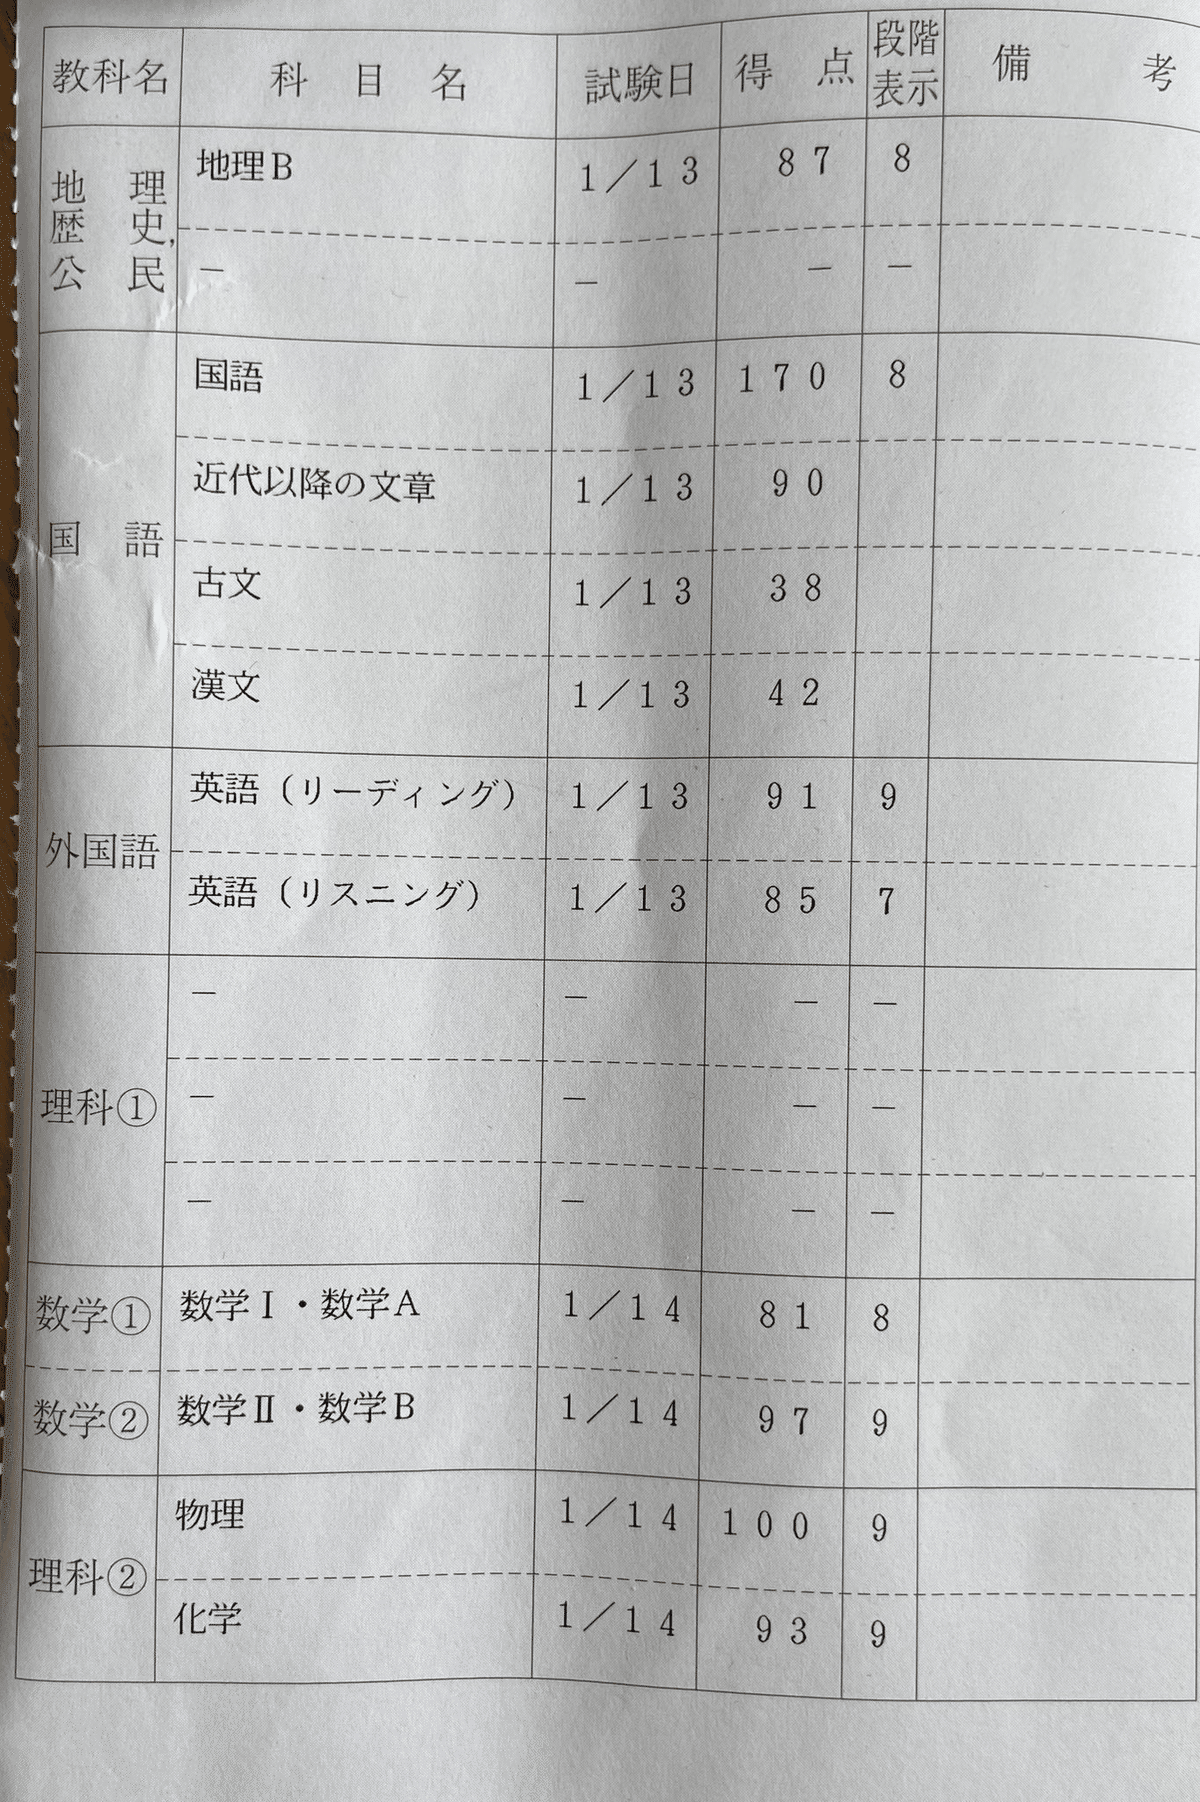 教科名 科目名 試験日 得点 段階表示 備考
地理歴史,公民 地理B 1/13 87 8
－ － － －
国語 国語 1/13 170 8
近代以降の文章 1/13 90
古文 1/13 38
漢文 1/13 42
外国語 英語（リーディング） 1/13 91 9
英語（リスニング） 1/13 85 7
理科① － － － －
－ － － －
－ － － －
数学① 数学Ⅰ・数学A 1/14 81 8
数学② 数学Ⅱ・数学B 1/14 97 9
理科② 物理 1/14 100 9
化学 1/14 93 9